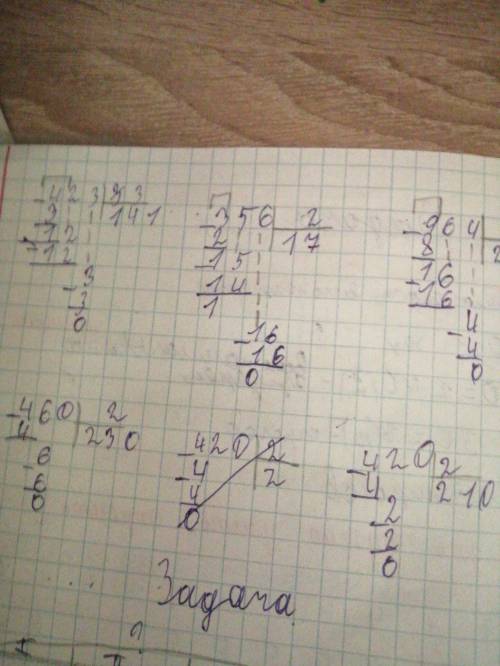 423 3
3 141
12
12
3
3
0
356 2
2 17
15
14
1
16
16
0
964
8 2
16
16
4
4
0
460 2
4 230
6
6
0
420 2
4 2
4
0
420 2
4 210
2
2
0
Задача
?
I
II